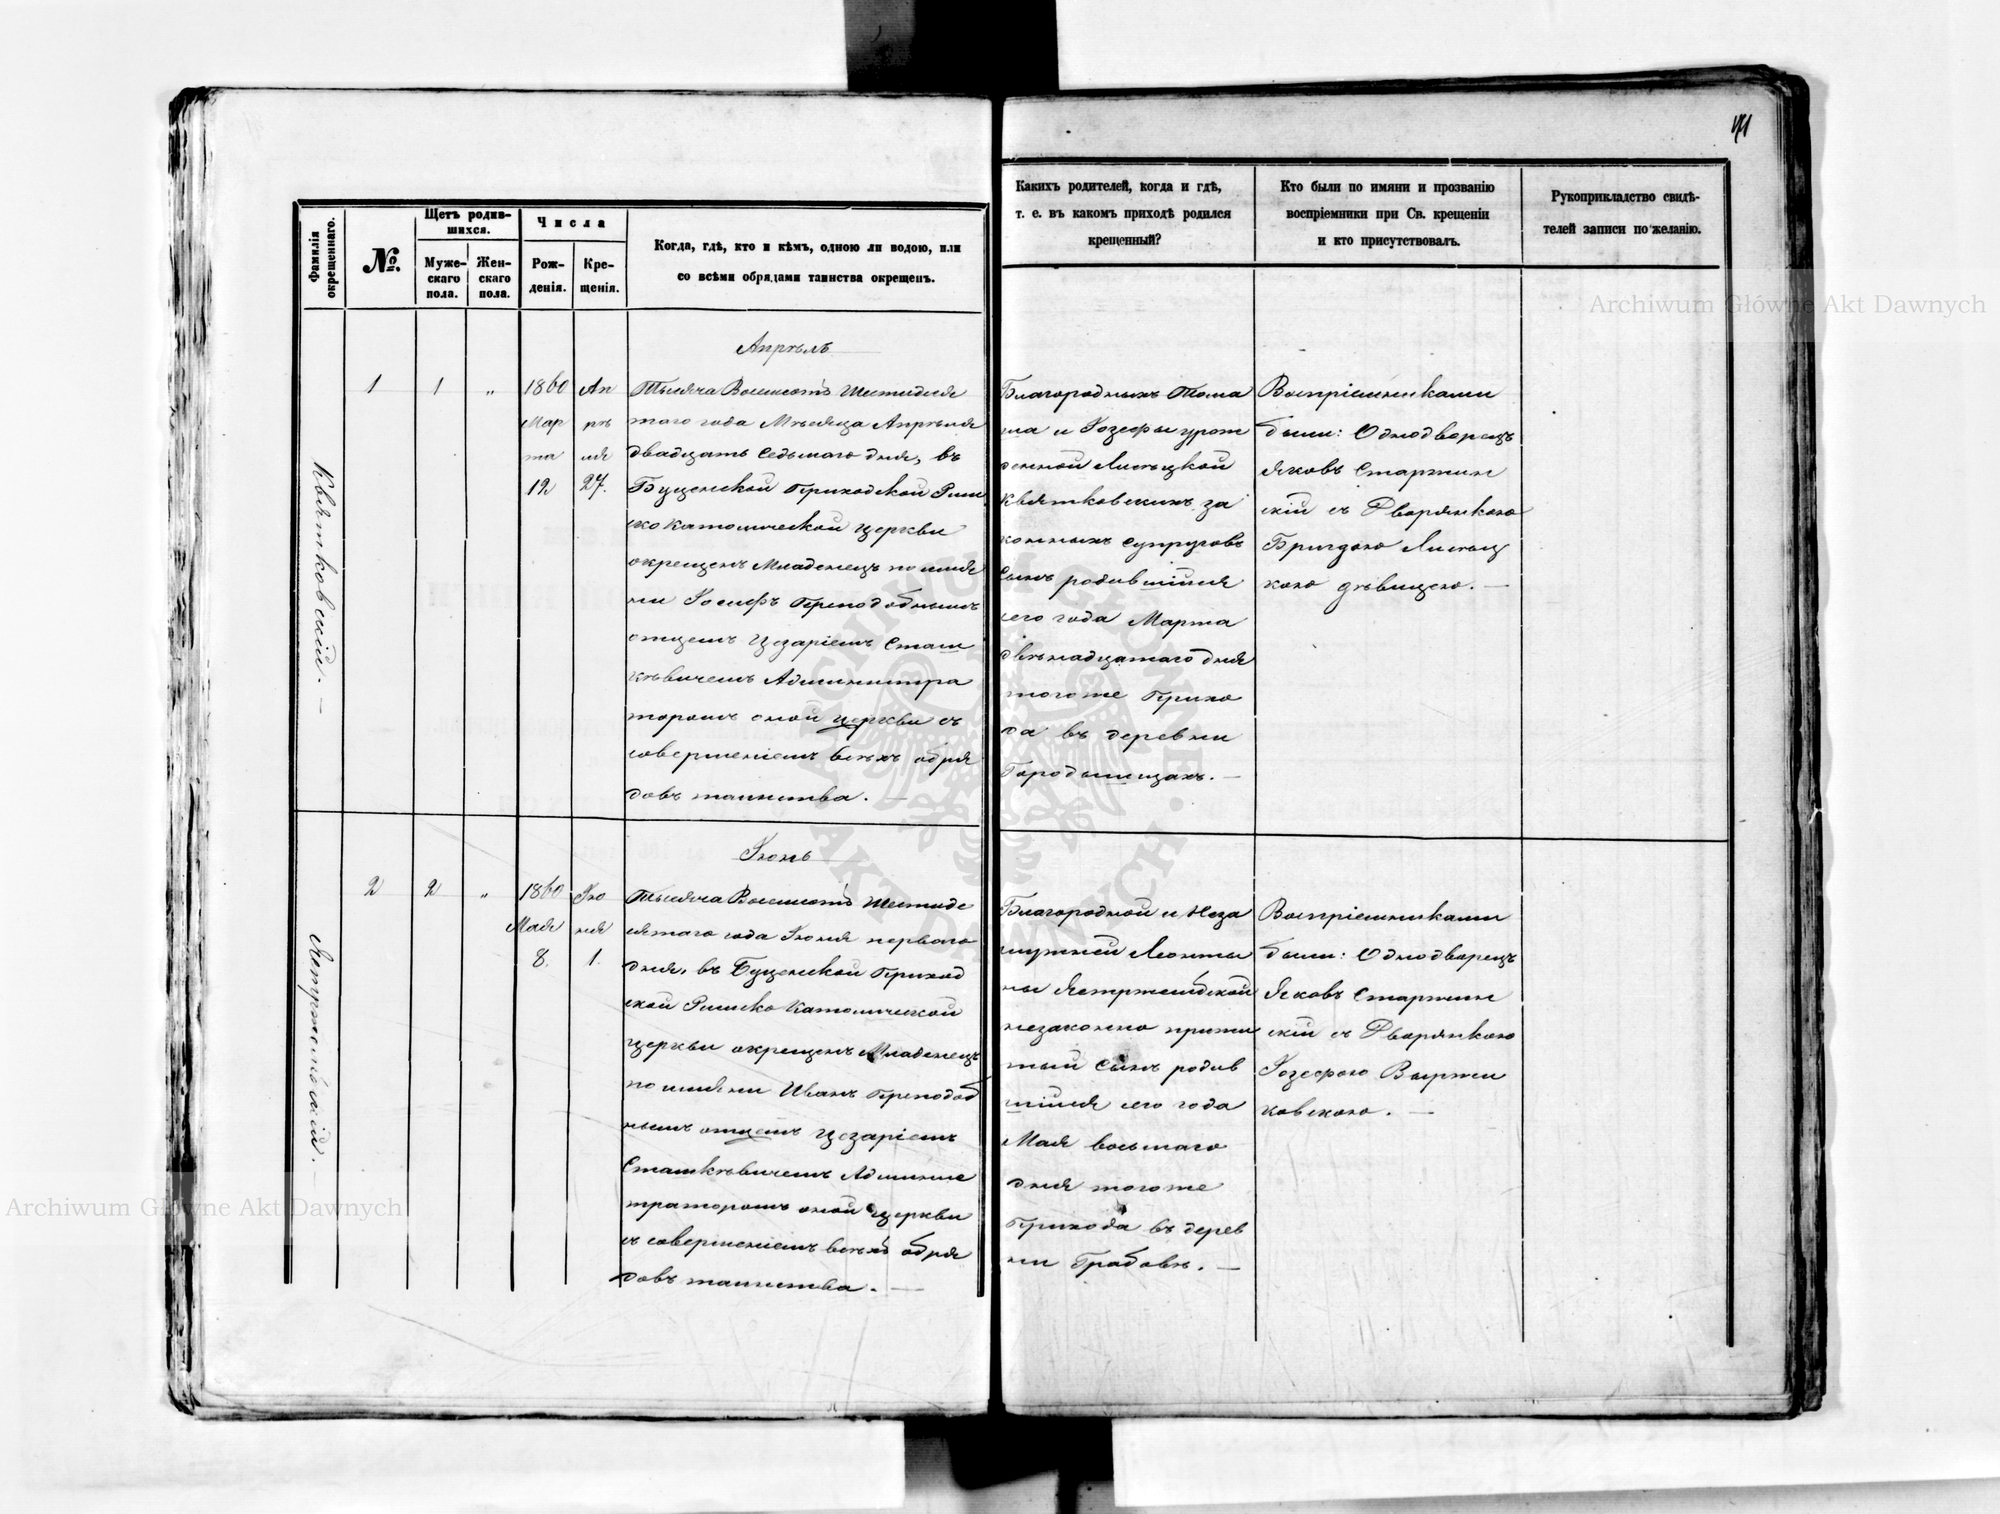 41
Фамилія окрещеннаго.
№.
Щетъ родив-
шихся.
Муже-
скаго
пола.
Жен-
скаго
пола.
Числа
Рож-
денія.
Кре-
щенія.
Когда, гдѣ, кто и кѣмъ, одною ли водою, или
со всѣми обрядами таинства окрещенъ.
Какихъ родителей, когда и гдѣ,
т. е. въ какомъ приходѣ родился
крещенный?
Кто были по имяни и прозванію
воспріемники при Св. крещеніи
и кто присутствовалъ.
Рукоприкладство свидѣ-
телей записи по желанію.
Archiwum Główne Akt Dawnych
Квятковскій. —
1
1
„
1860
Мар
та
12
Ап
рѣ
ля
27.
Апрѣль
Тысяча Восемьсотъ Шестидеся
таго года Мѣсяца Апрѣля
двадцать седьмаго дня, въ
Буценской Приходской Рим
ско Католической церкви
окрещенъ Младенецъ по имя
ни Іосифъ Преподобнымъ
отцемъ Цезаріемъ Сташ
кѣвичемъ Администра
торомъ оной церкви съ
совершеніемъ всѣхъ обря
довъ таинства. —
Благородныхъ Тома
ша и Іозефы урож
денной Листцкой
Квятковскихъ за
конныхъ супруговъ
сынъ родившійся
сего года Марта
двѣнадцатаго дня
тогоже Прихо
да въ деревни
Городыщахъ. —
Воспріемниками
были: Однодворецъ
Яковъ Старжин
скій съ Дворянкою
Бригдою Листец
кою дѣвицею. —
Ястржембскій. —
2
2
„
1860
Мая
8.
Ію
ня
1.
Іюнь
Тысяча Восемьсотъ Шестиде
сятаго года Іюня перваго
дня, въ Буценской Приход
ской Римско Католической
церкви окрещенъ Младенецъ
по имяни Иванъ Преподоб
нымъ отцемъ Цезаріемъ
Сташкѣвичемъ Админис
траторомъ оной церкви
съ совершеніемъ всѣхъ обря
довъ таинства. —
Благородной и Неза
мужней Леонты
ны Ястржембской
незаконно прижи
тый сынъ родив
шійся сего года
Мая восьмаго
дня тогоже
Прихода въ дерев
ни Грабовѣ. —
Воспріемниками
были: Однодворецъ
Яковъ Старжин
скій съ Дворянкою
Іозефою Выржи
ковскою. —
Archiwum Główne Akt Dawnych
ARCHIWUM GŁÓWNE AKT DAWNYCH